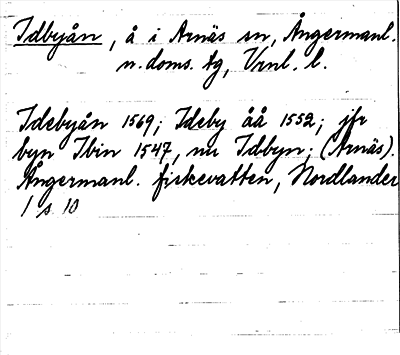 Idbyån, å i Arnäs sn, Ångermanl.
n. doms. tg, Vrnl. l.
Idebyån 1569; Ideby åå 1552; jfr
byn Ibin 1547, nu Idbyn; (Arnäs).
Ångermanl. fiskevatten, Nordlander
1 s 10